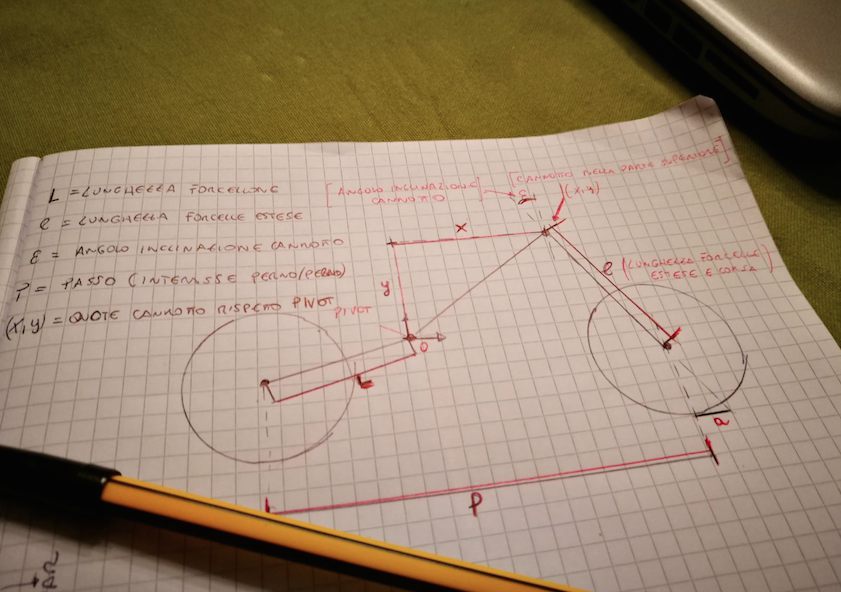 L = LUNGHEZZA FORCELLONE
l = LUNGHEZZA FORCELLE ESTESE
ε = ANGOLO INCLINAZIONE CANNOTTO
P = PASSO (INTERASSE PERNO/PERNO)
(x,y) = QUOTE CANNOTTO RISPETTO PIVOT
[ANGOLO INCLINAZIONE
CANNOTTO
ε
[CANNOTTO NELLA PARTE SUPERIORE]
(x,y)
x
y
PIVOT
O
L
l (LUNGHEZZA FORCELLE
ESTESE E CORSA)
a
P